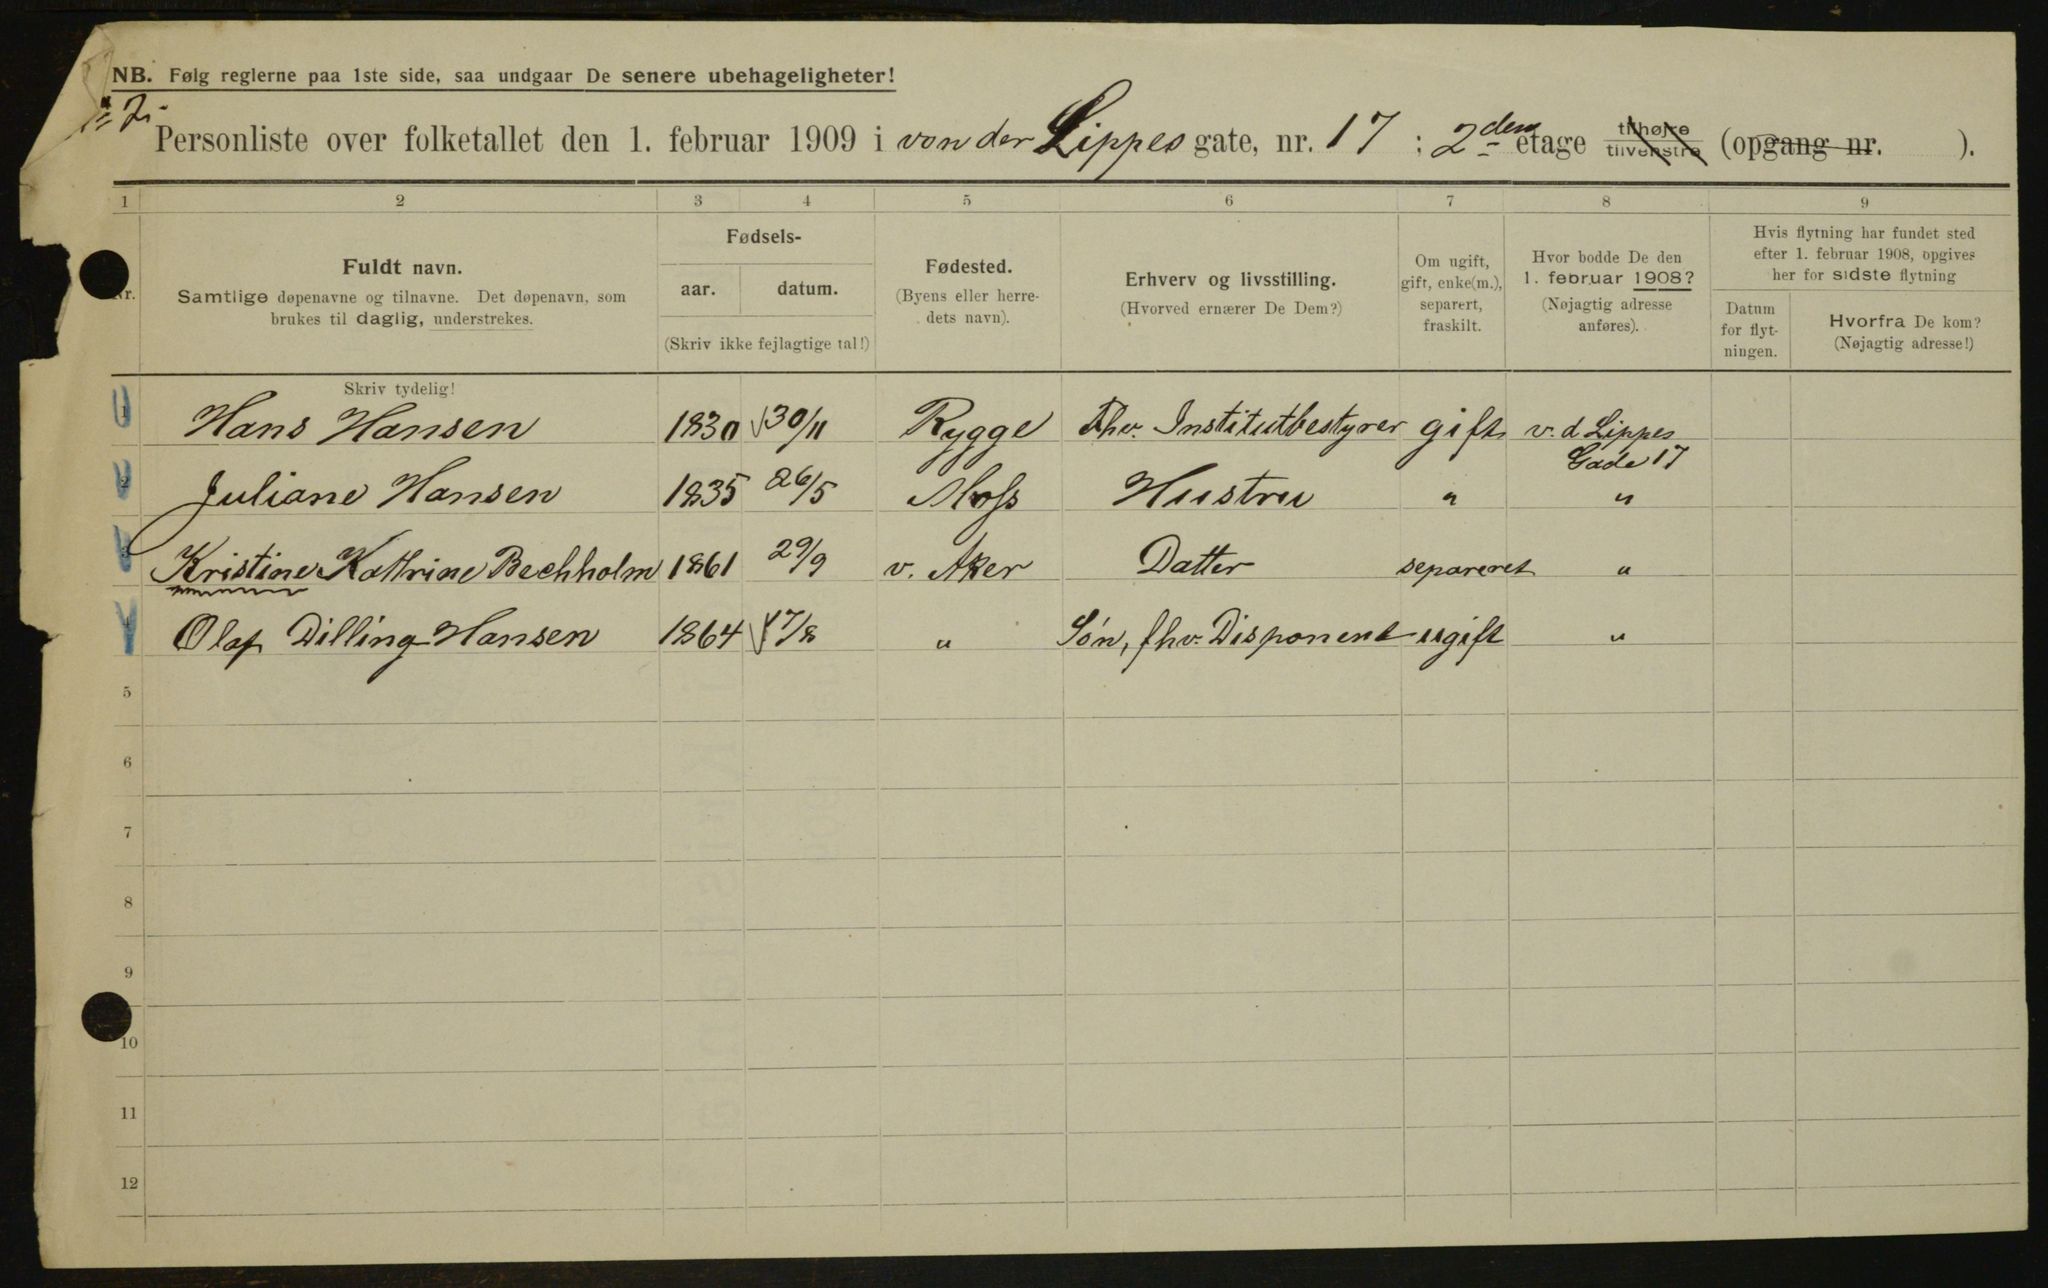 NB. Følg reglerne paa 1ste side, saa undgaar De senere ubehageligheter!
Personliste over folketallet den 1. februar 1909 i von der Lippes gate, nr. 17 : 2den etage tilhøjre tilvenstre (opgang nr. ).
1 2 3 4 5 6 7 8 9
Nr.
Fuldt navn.
Samtlige døpenavne og tilnavne. Det døpenavn, som
brukes til daglig, understrekes.
Skriv tydelig!
Fødsels-
aar. datum.
(Skriv ikke fejlagtige tal!)
Fødested.
(Byens eller herre-
dets navn).
Erhverv og livsstilling.
(Hvorved ernærer De Dem?)
Om ugift,
gift, enke(m.),
separert,
fraskilt.
Hvor bodde De den
1. februar 1908?
(Nøjagtig adresse
anføres).
Hvis flytning har fundet sted
efter 1. februar 1908, opgives
her for sidste flytning
Datum
for flyt-
ningen.
Hvorfra De kom?
(Nøjagtig adresse!)
1 Hans Hansen 1830 30/11 Rygge Fhv. Institutbestyrer gift v. d Lippes
Gade 17
2 Juliane Hansen 1835 26/5 Moss Hustru " "
3 Kristine Kathrine Bechholm 1861 29/9 v. Aker Datter separeret "
4 Olaf Dilling Hansen 1864 17/8 " Søn, fhv. Disponent ugift "
5
6
7
8
9
10
11
12